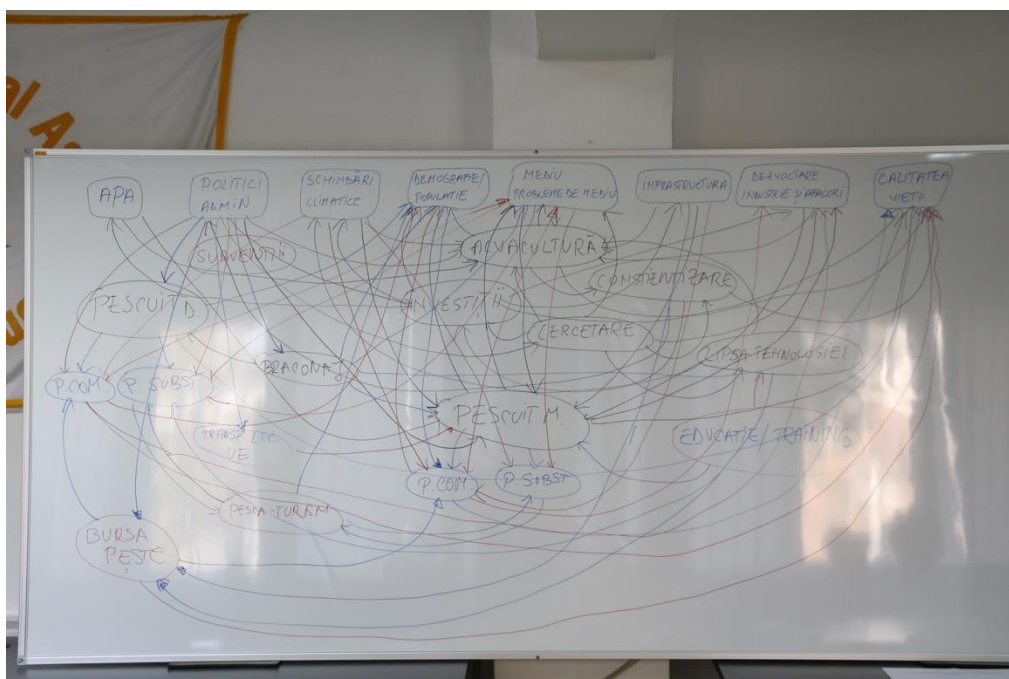 APA
POLITICI
ADMIN
SCHIMBĂRI
CLIMATICE
DEMOGRAFIE/
POPULATIE
MEDIU
PROBLEME DE MEDIU
INFRASTRUCTURA
DEZVOLTARE
INDUSTRIE ȘI AFACERI
CALITATEA
VIETII
SUBVENTII
ACVACULTURĂ
CONSTIENTIZARE
PESCUIT D.
INVESTIȚII
CERCETARE
LIPSA TEHNOLOGIEI
BRACONAJ
P.COM
P. SUBST
PESCUIT M.
UE
EDUCATIE/TRAINING
P.COM
P. SUBST
PESCA-TURISM
BURSA
PEȘTE